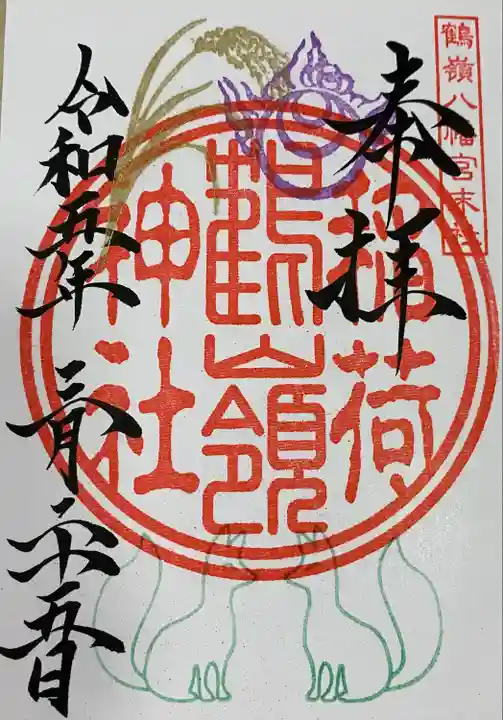 鶴嶺八幡宮末社
奉拝
稲荷
鶴嶺
神社
令和五年 三月 二十五日